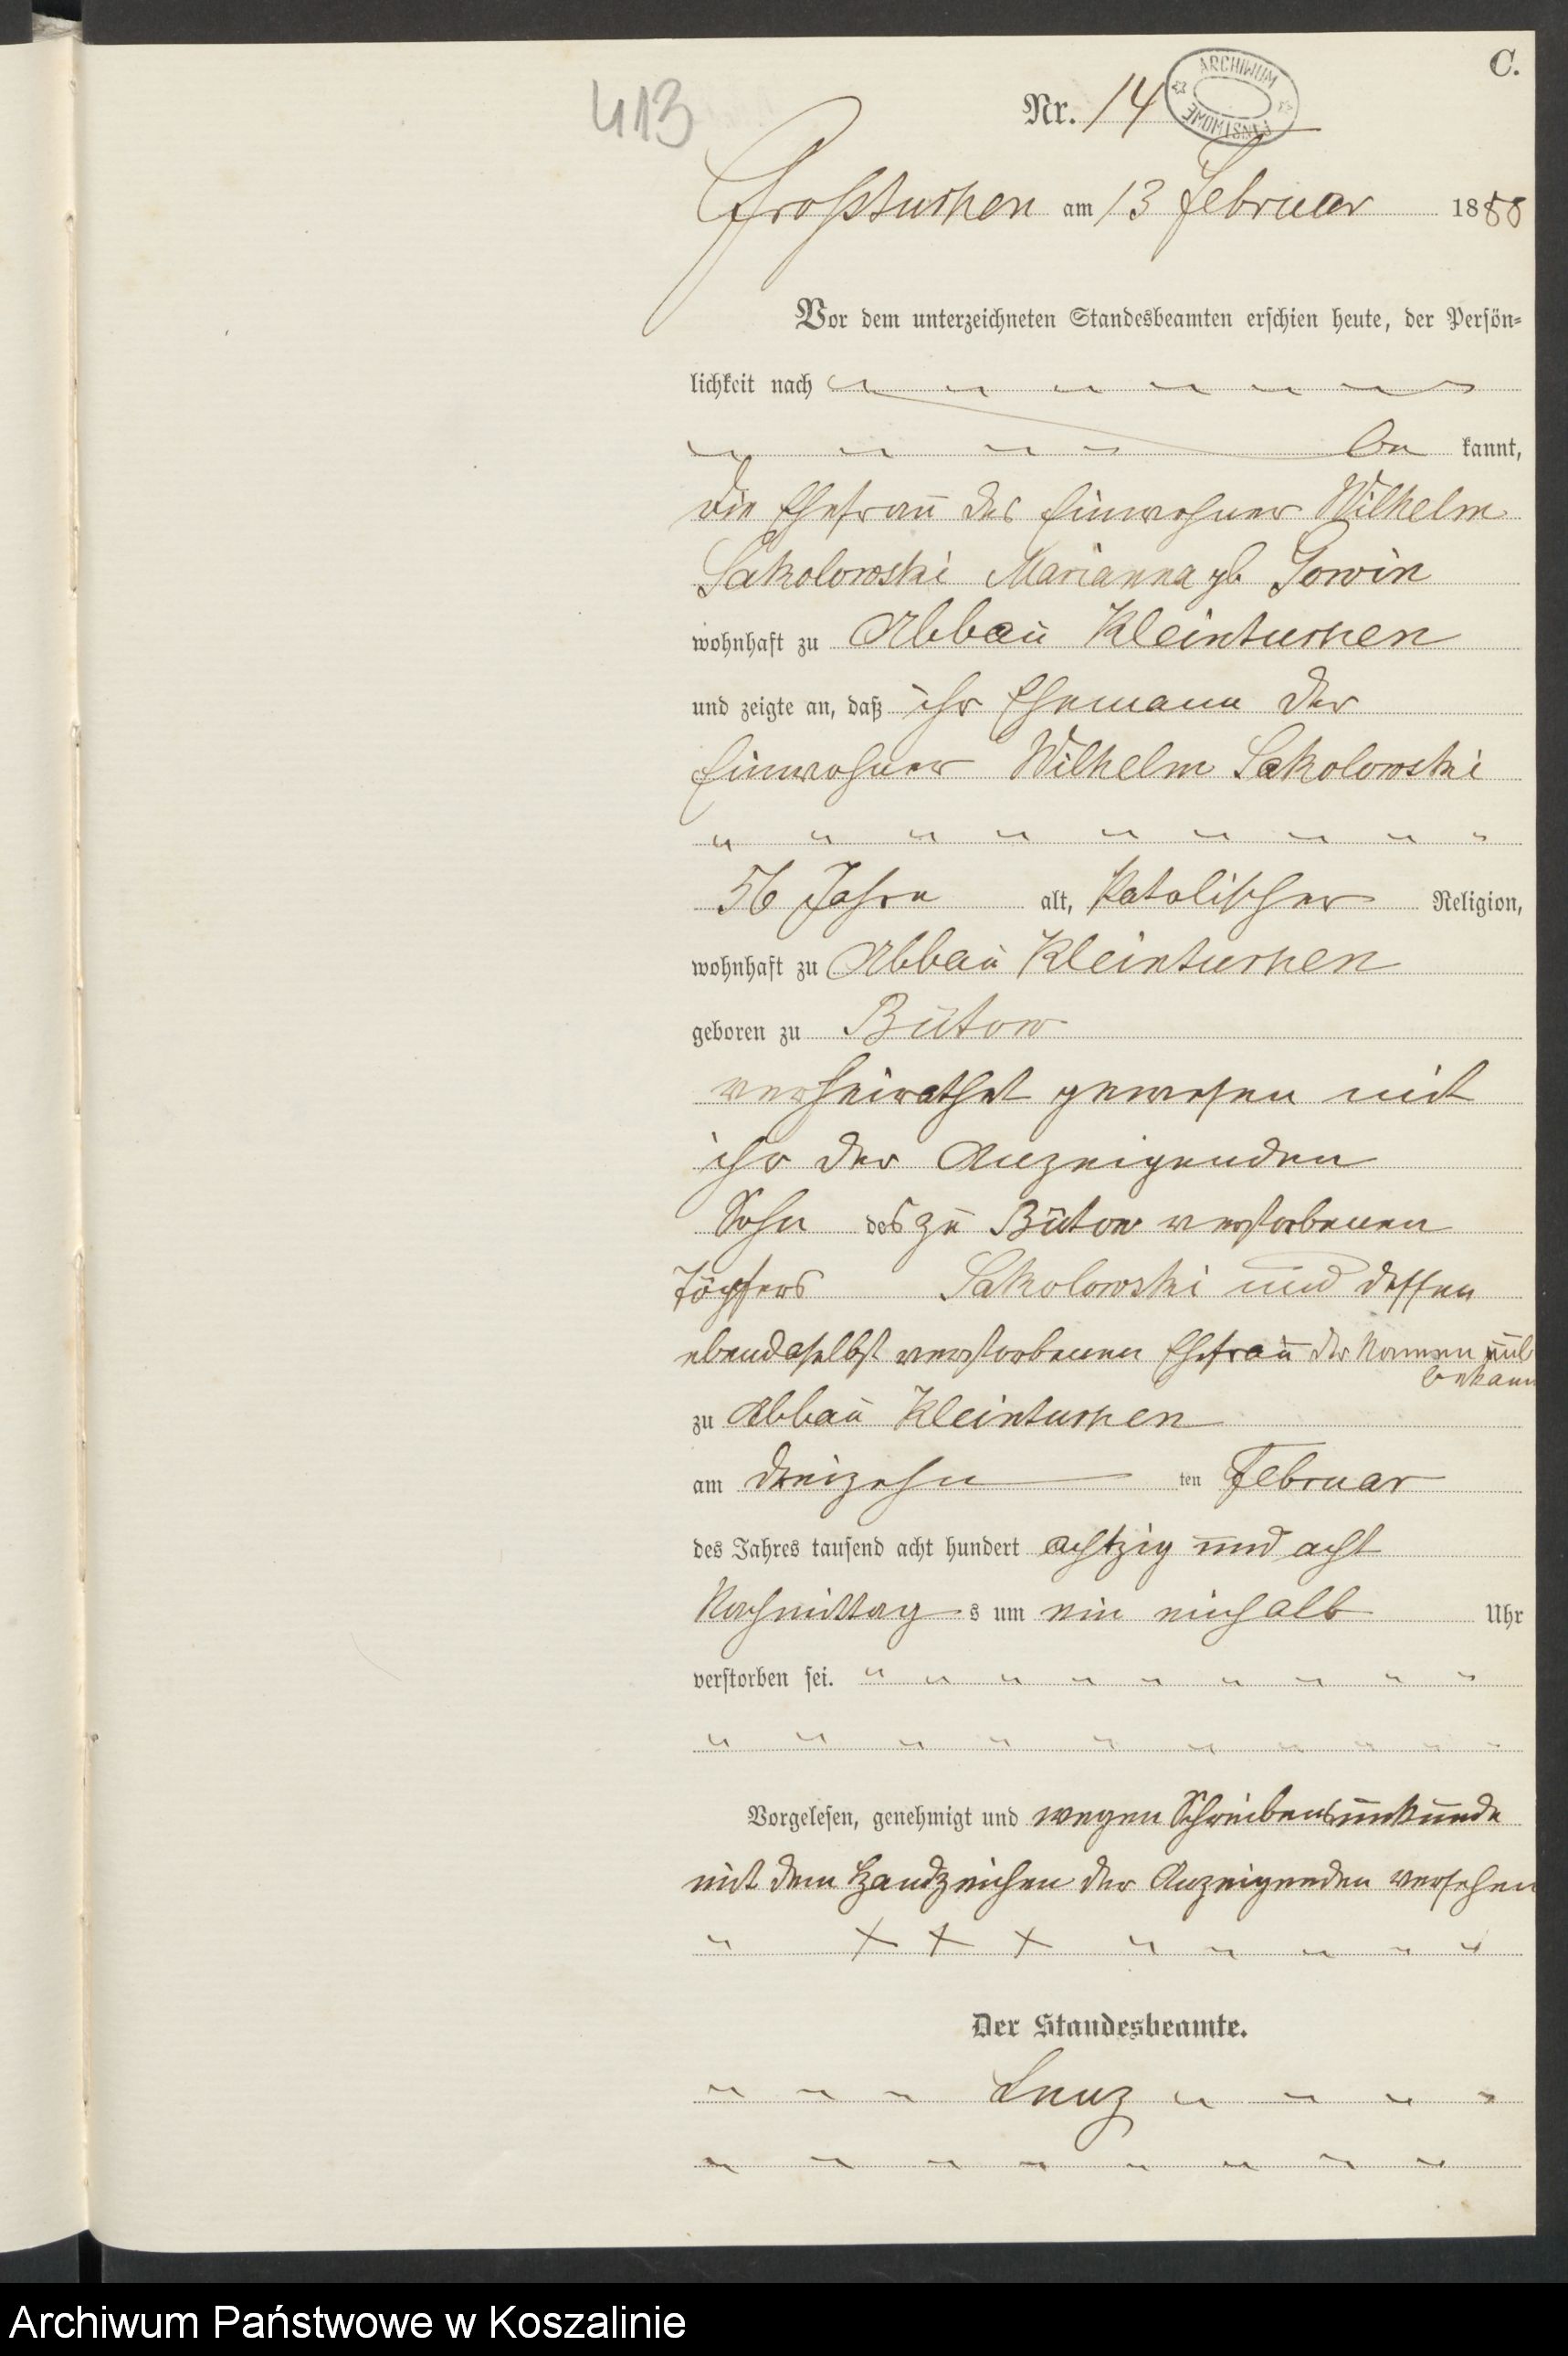 C.
413
Nr. 14
ARCHIWUM PAŃSTWOWE
Großtuchen am 13 Februar 1888
Vor dem unterzeichneten Standesbeamten erschien heute, der Persön-
lichkeit nach
be kannt,
die Ehefrau des Einwohner Wilhelm
Sakolowski Marianna gb Gowin
wohnhaft zu Abbau Kleintuchen
und zeigte an, daß ihr Ehemann der
Einwohner Wilhelm Sakolowski
56 Jahre alt, katolischer Religion,
wohnhaft zu Abbau Kleintuchen
geboren zu Bütow
verheirathet gewesen mit
ihr der Anzeigenden
Sohn des zu Bütow verstorbenen
Töpfers Sakolowski und dessen
ebendaselbst verstorbenen Ehefrau der Nammen unbekannt
zu Abbau Kleintuchen
am dreizehn ten Februar
des Jahres tausend acht hundert achtzig und acht
Nachmittag s um ein einhalb Uhr
verstorben sei.
Vorgelesen, genehmigt und wegen Schreibensunkunde
mit dem Handzeichen der Anzeigenden versehen
+ + +
Der Standesbeamte.
Lenz
Archiwum Państwowe w Koszalinie